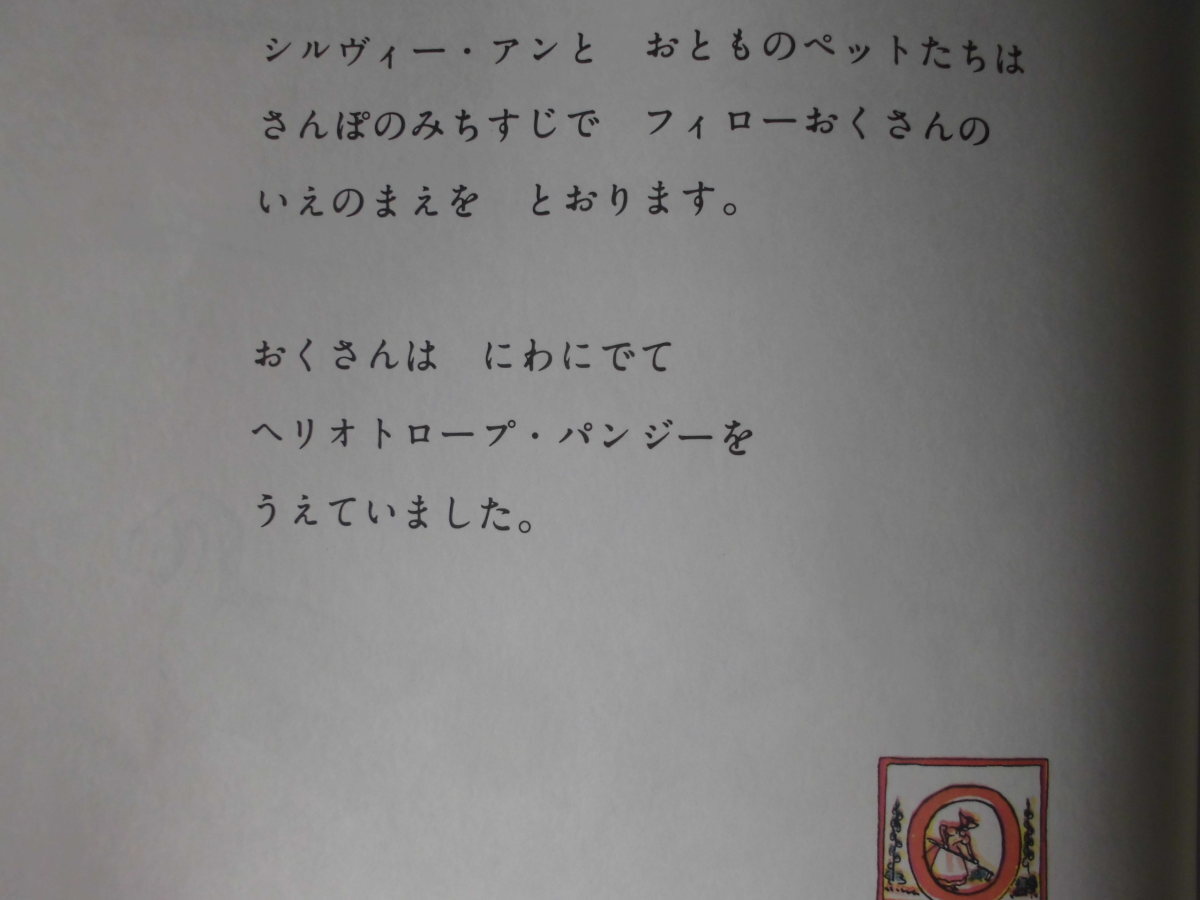 シルヴィー・アンと　おとものペットたちは
さんぽのみちすじで　フィローおくさんの
いえのまえを　とおります。
おくさんは　にわにでて
ヘリオトロープ・パンジーを
うえていました。
O